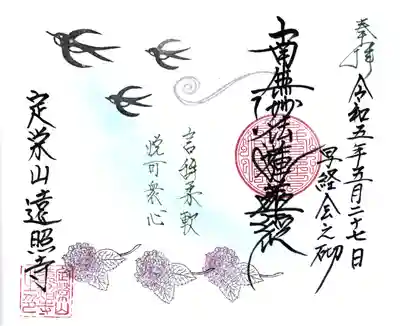 奉拝
令和五年五月二十七日
写経会之砌
南無妙法蓮華経
言辞柔軟
悦可衆心
定栄山遠照寺